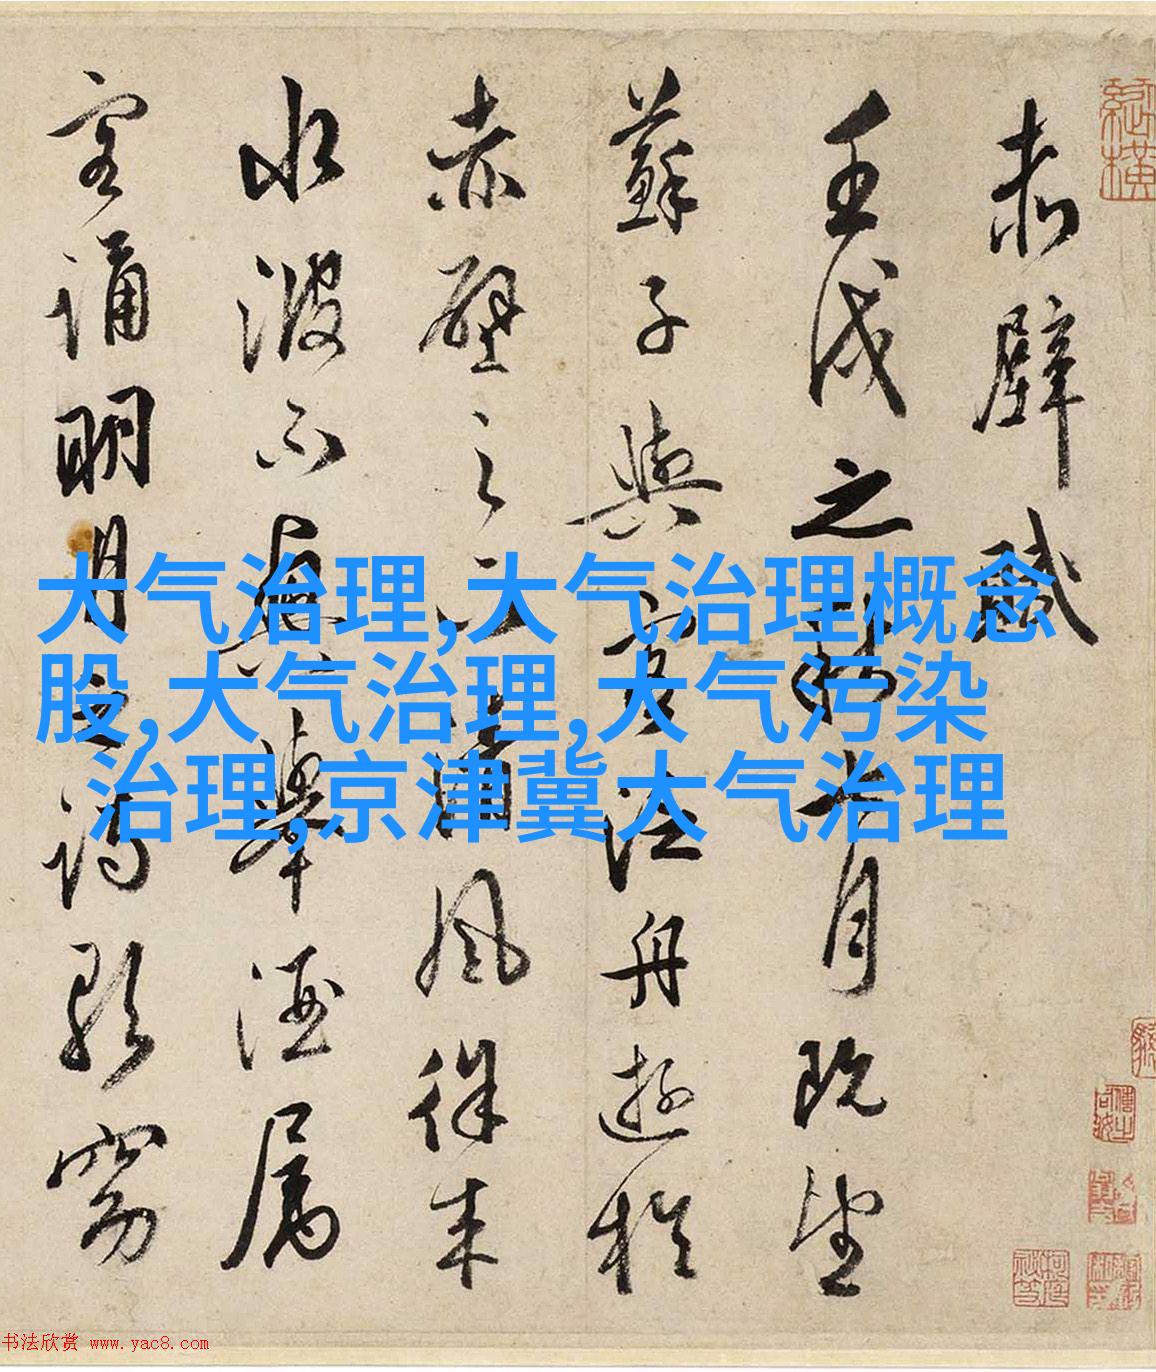 赤壁賦
壬戌之秋七月既望
蘇子與客泛舟遊於
赤壁之下清風徐来
水波不興舉酒属
客誦明月之詩歌窈
大气治理,大气治理概念
股,大气治理,大气污染
治理,京津冀大气治理
书法欣赏 www.yac8.com